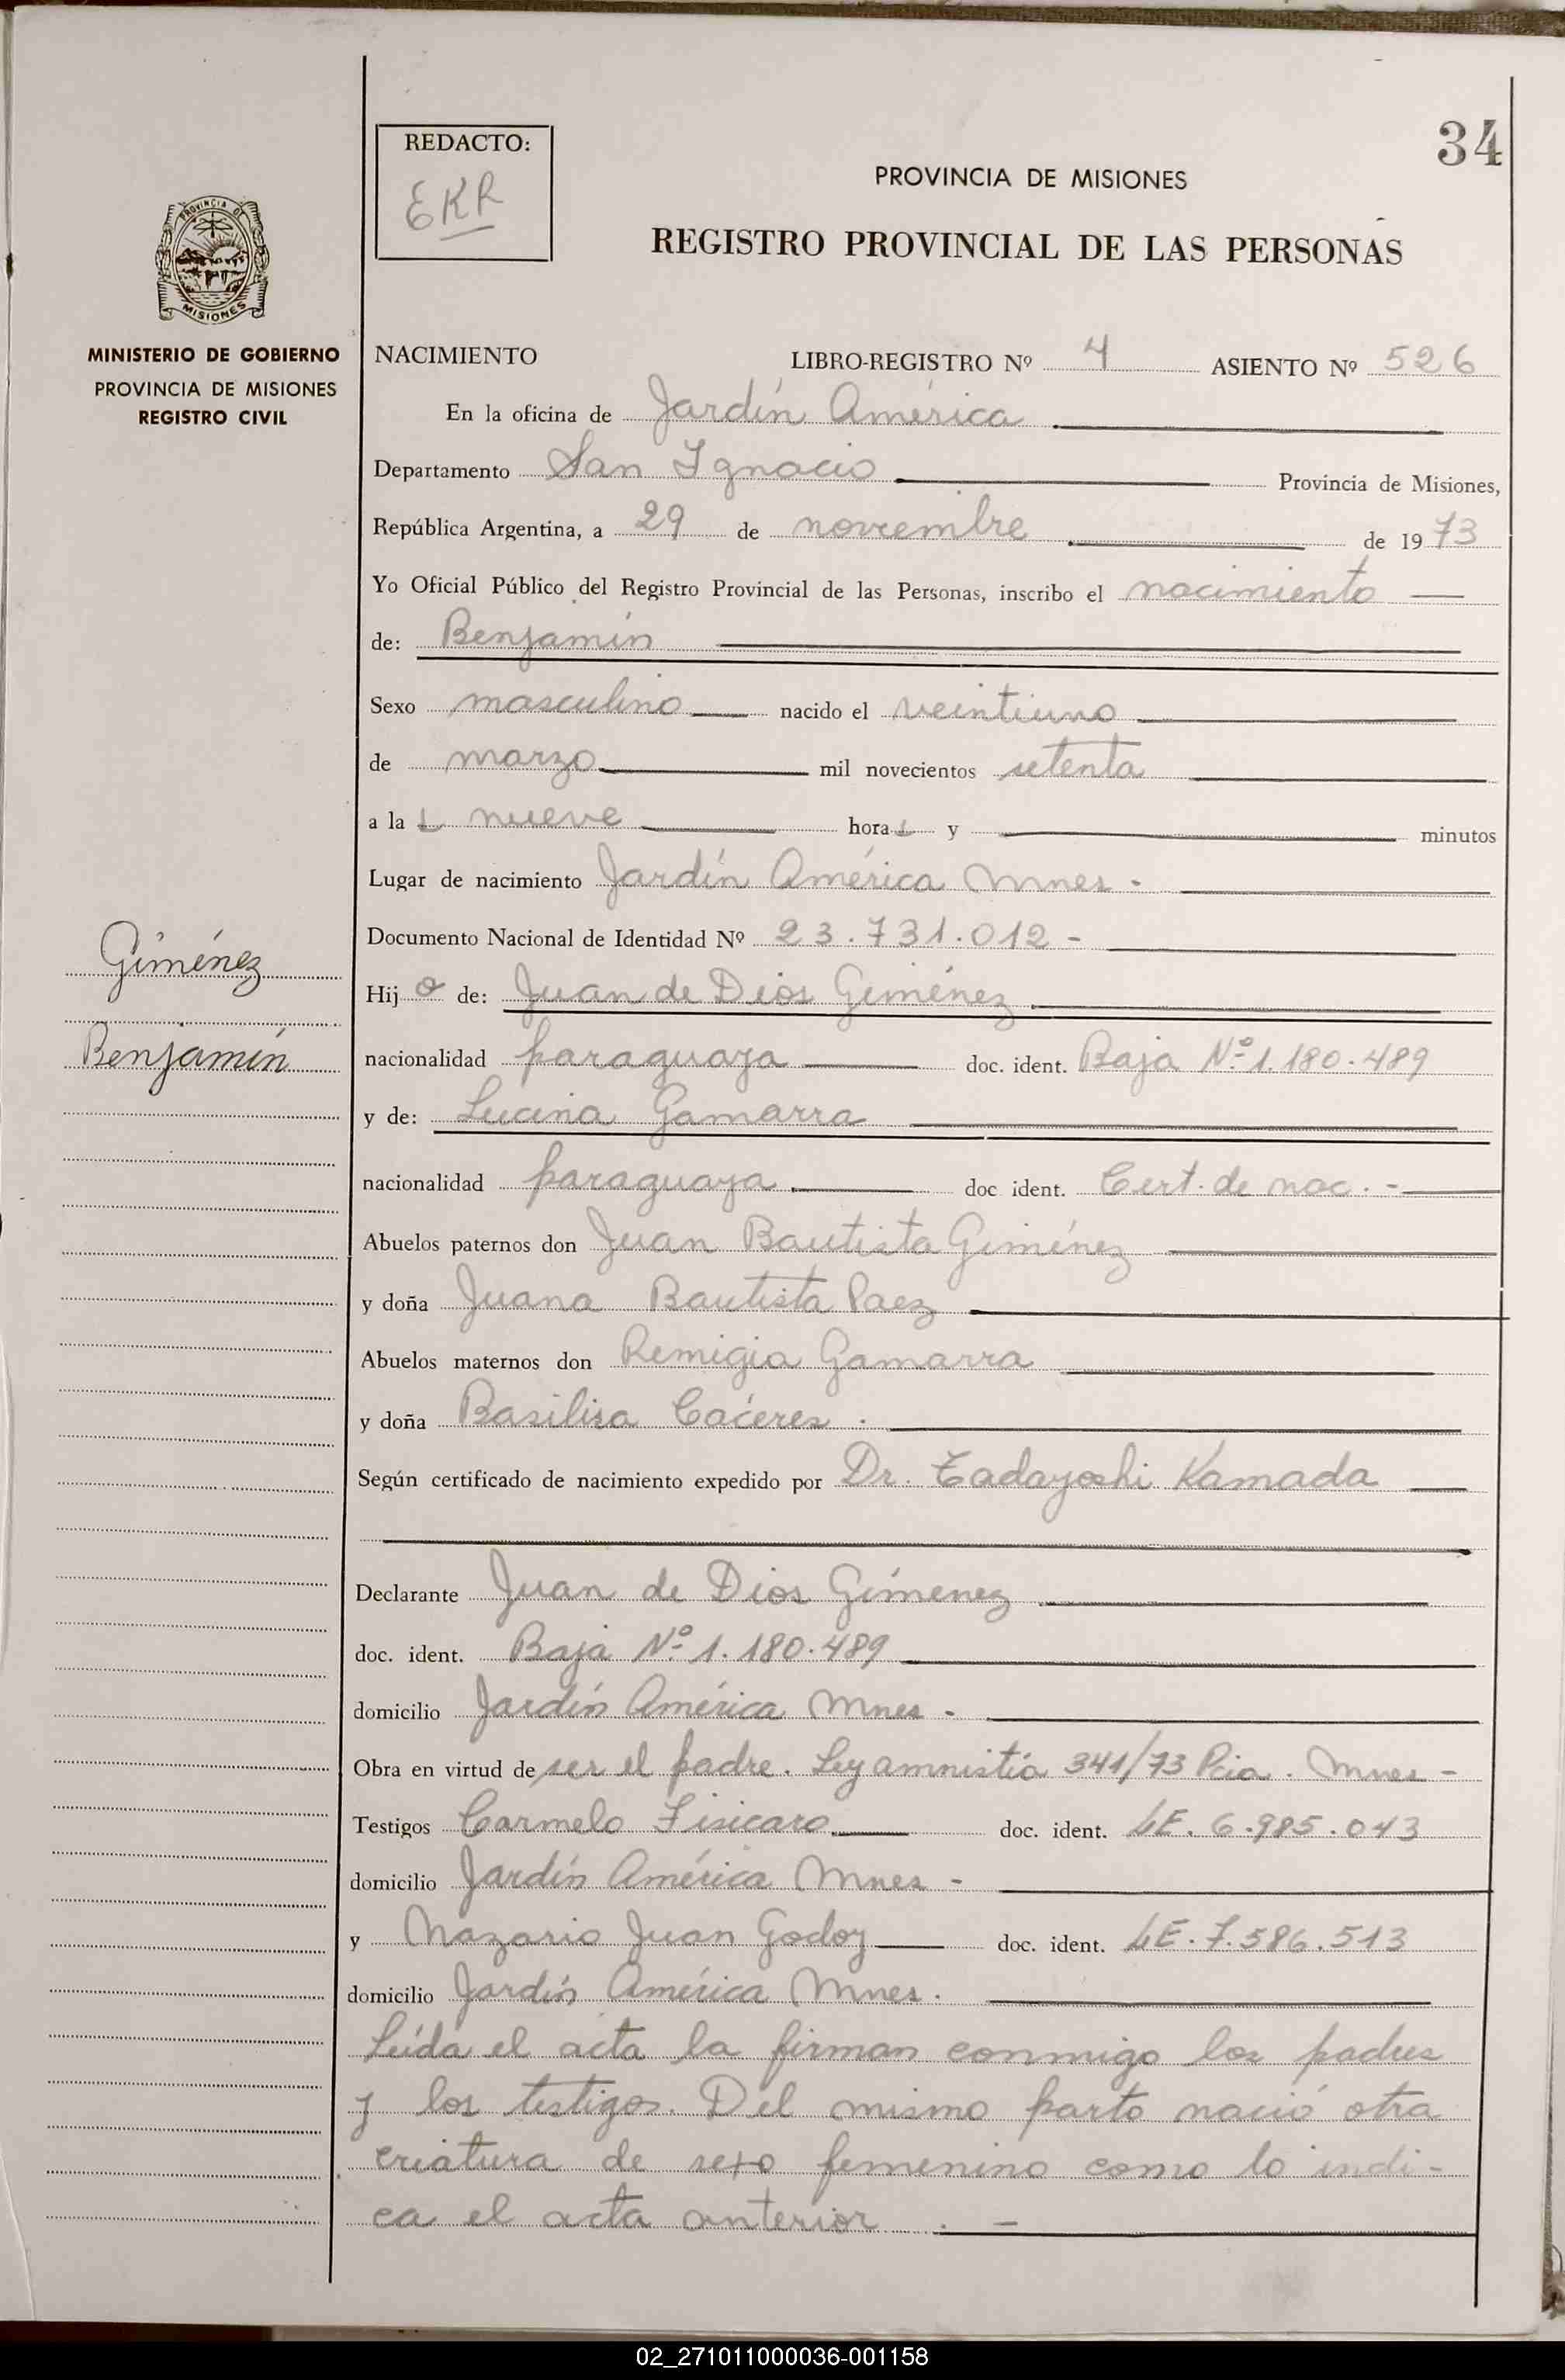 34
REDACTO:
EKR
PROVINCIA DE MISIONES
REGISTRO PROVINCIAL DE LAS PERSONAS
PROVINCIA DE
MISIONES
MINISTERIO DE GOBIERNO
PROVINCIA DE MISIONES
REGISTRO CIVIL
NACIMIENTO LIBRO-REGISTRO Nº 4 ASIENTO Nº 526
En la oficina de Jardín América
Departamento San Ignacio Provincia de Misiones,
República Argentina, a 29 de noviembre de 1973
Yo Oficial Público del Registro Provincial de las Personas, inscribo el nacimiento
de: Benjamín
Sexo masculino nacido el veintiuno
de marzo mil novecientos setenta
a la s nueve hora s y minutos
Lugar de nacimiento Jardín América Mnes -
Documento Nacional de Identidad Nº 23.731.012 -
Giménez
Hij o de: Juan de Dios Giménez
Benjamín
nacionalidad paraguaya doc. ident. Baja Nº 1.180.489
y de: Lucina Gamarra
nacionalidad paraguaya doc ident. Cert. de nac. -
Abuelos paternos don Juan Bautista Giménez
y doña Juana Bautista Paez
Abuelos maternos don Remigia Gamarra
y doña Basilisa Cáceres .
Según certificado de nacimiento expedido por Dr. Tadayoshi Kamada
Declarante Juan de Dios Gímenez
doc. ident. Baja Nº 1.180.489
domicilio Jardín América Mnes -
Obra en virtud de ser el padre. Ley amnistía 341/73 Pcia. Mnes -
Testigos Carmelo Fisicaro doc. ident. LE. 6.985.043
domicilio Jardín América Mnes -
y Nazario Juan Godoy doc. ident. LE. 7.586.513
domicilio Jardín América Mnes.
Leída el acta la firman conmigo los padres
y los testigos. Del mismo parto nació otra
criatura de sexo femenino como lo indi-
ca el acta anterior . -
02_271011000036-001158